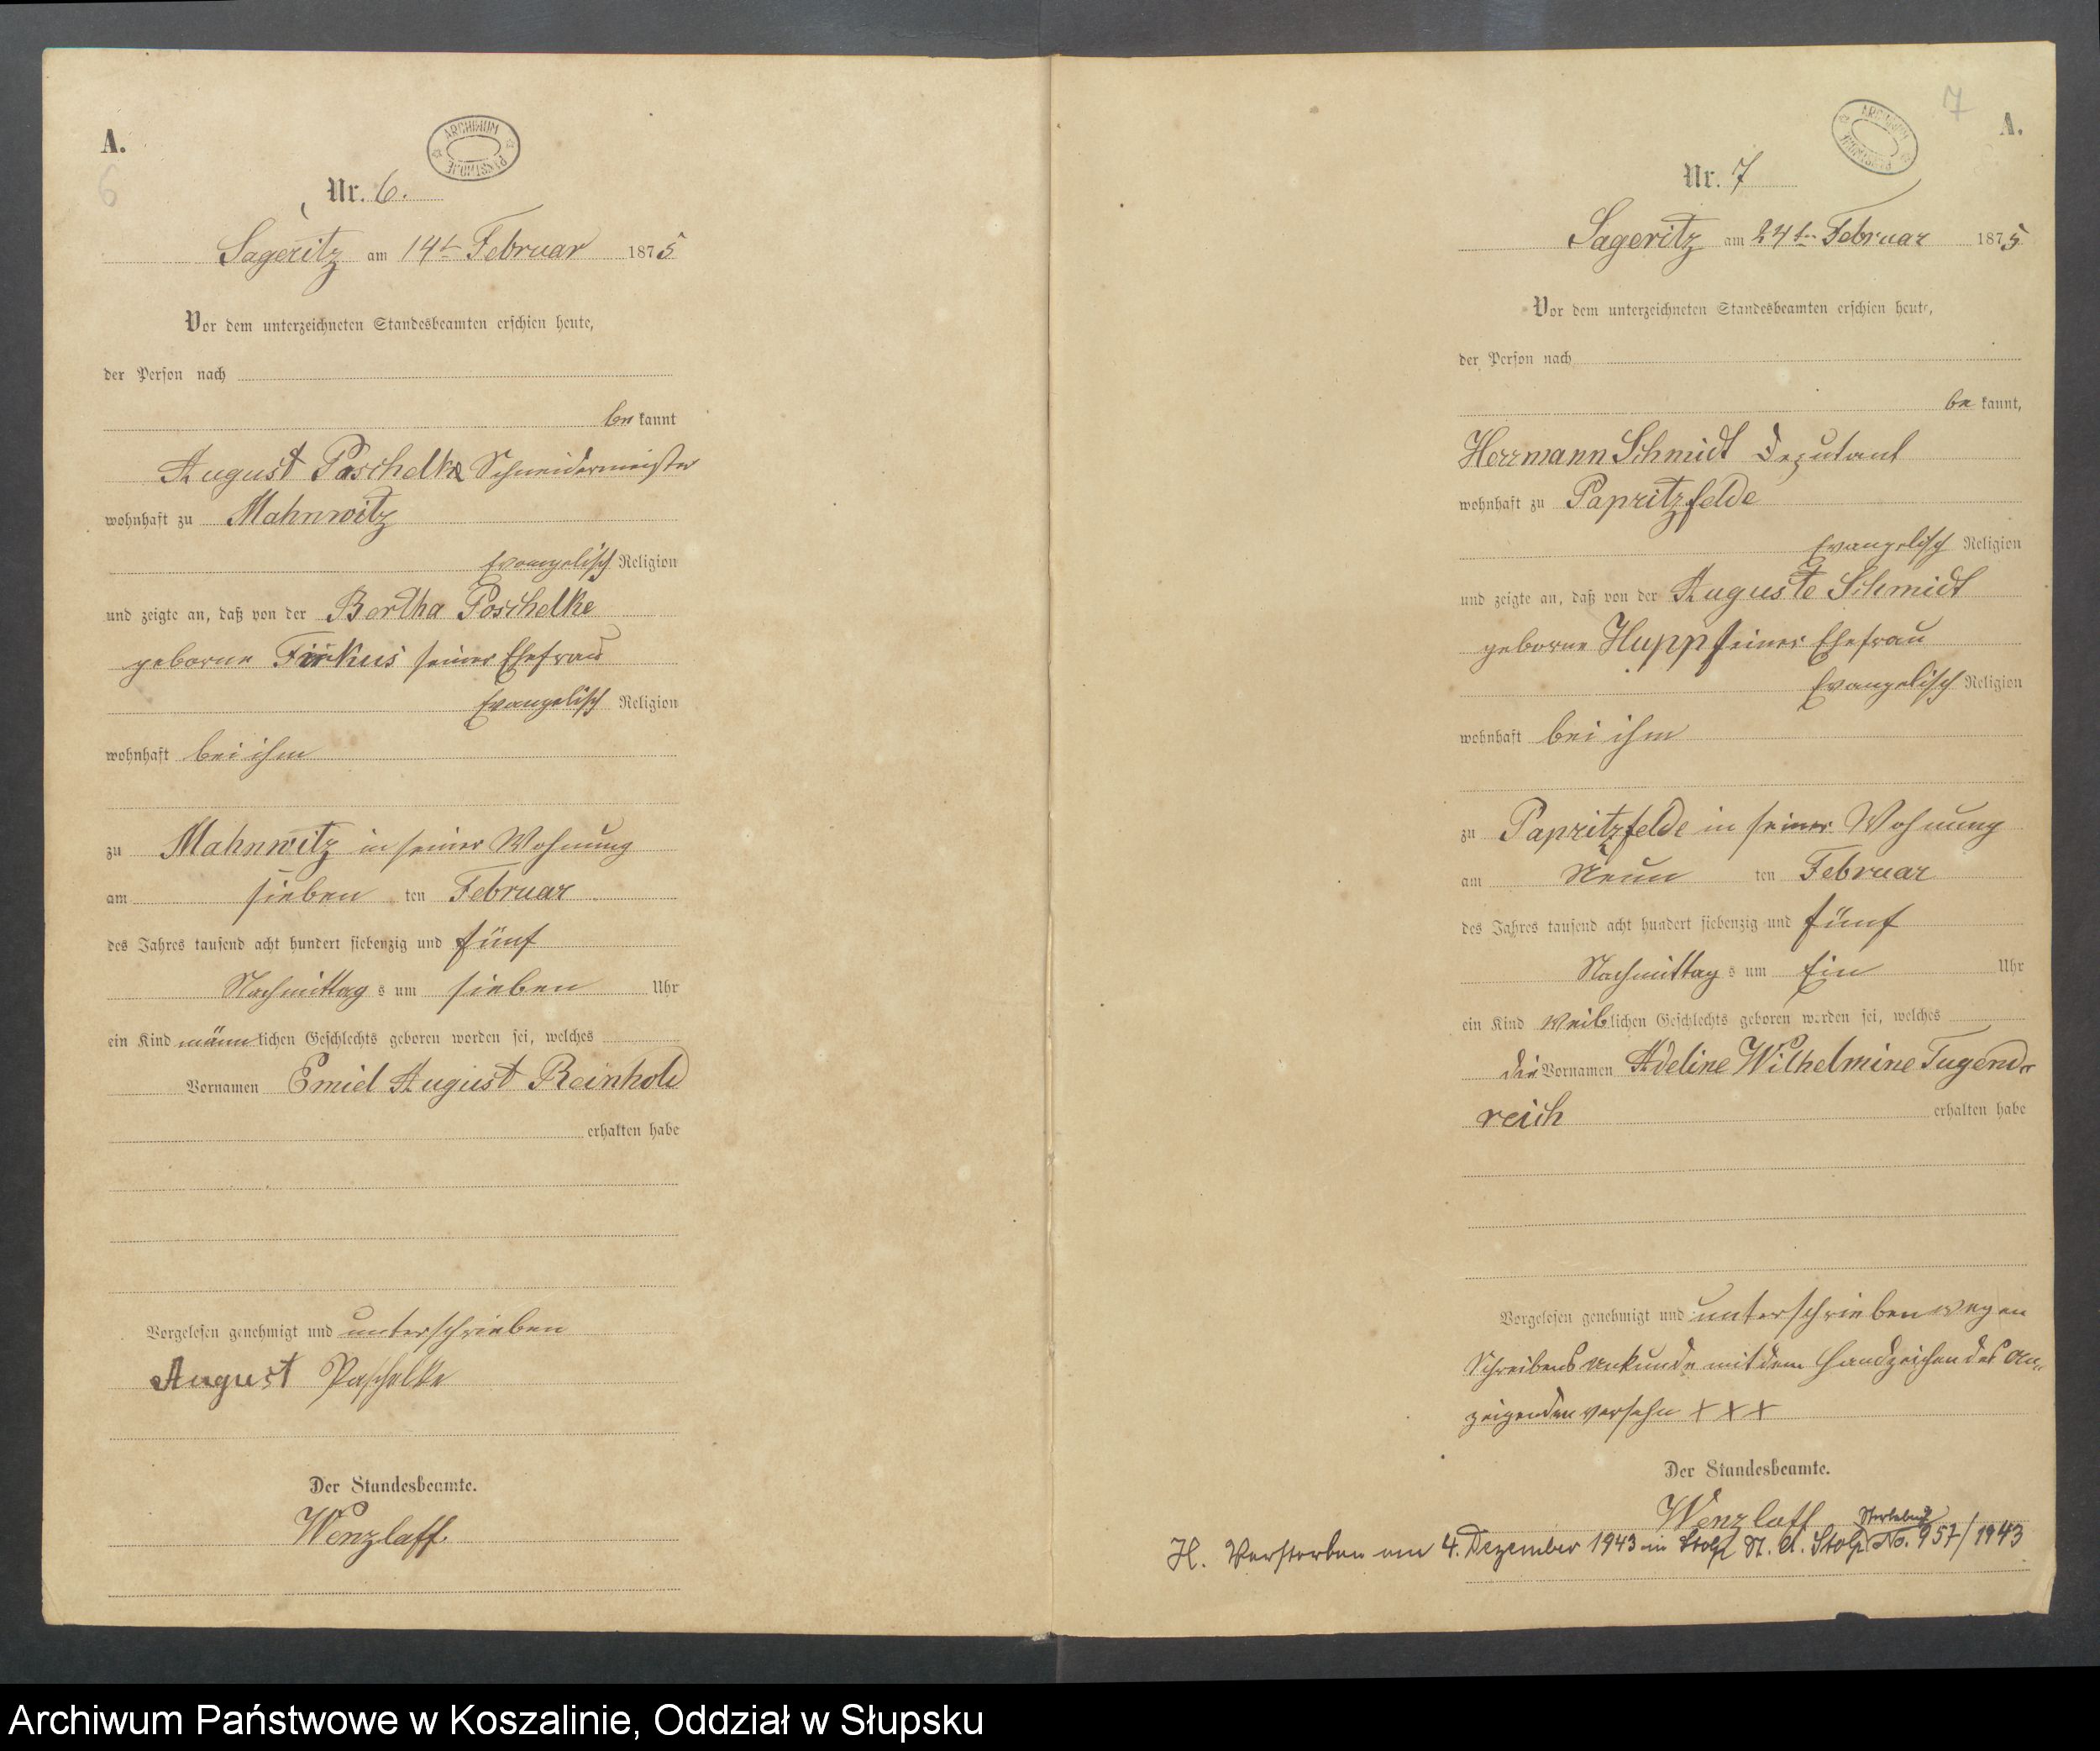 A.
6
ARCHIWUM PAŃSTWOWE
Nr. 6.
Sageritz am 14t Februar 1875
Vor dem unterzeichneten Standesbeamten erschien heute,
der Person nach
bekannt
August Paschelke Schneidermeister
wohnhaft zu Mahnwitz
Evangelisch Religion
und zeigte an, daß von der Bertha Poschelke
geborne seiner Ehefrau
Evangelisch Religion
wohnhaft bei ihm
zu Mahnwitz in seiner Wohnung
am sieben ten Februar
des Jahres tausend acht hundert siebenzig und fünf
Nachmittag s um sieben Uhr
ein Kind männlichen Geschlechts geboren worden sei, welches
Vornamen Emiel August Reinhold
erhalten habe
Vorgelesen genehmigt und unterschrieben
August Paschelke
Der Standesbeamte.
Wenzlaff
7
A.
ARCHIWUM PAŃSTWOWE
Nr. 7
Sageritz am 24t Februar 1875
Vor dem unterzeichneten Standesbeamten erschien heute,
der Person nach
bekannt,
Herrmann Schmidt Deputant
wohnhaft zu Papritzfelde
Evangelisch Religion
und zeigte an, daß von der Auguste Schmidt
geborne Hupp seiner Ehefrau
Evangelisch Religion
wohnhaft bei ihm
zu Papritzfelde in seiner Wohnung
am Neun ten Februar
des Jahres tausend acht hundert siebenzig und fünf
Nachmittag s um Ein Uhr
ein Kind weiblichen Geschlechts geboren worden sei, welches
die Vornamen Adeline Wilhelmine Tugend-
reich erhalten habe
Vorgelesen genehmigt und unterschrieben wegen
Schreibens unkunde mit dem Handzeichen des An-
zeigenden versehn XXX
Der Standesbeamte.
Wenzlaff
Sterbebuch
H. Verstorben am 4. Dezember 1943 in Stolp St. A. Stolp No. 957/1943
Archiwum Państwowe w Koszalinie, Oddział w Słupsku